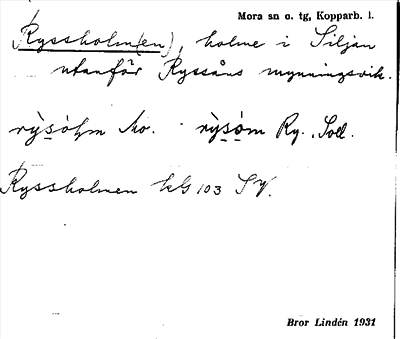 Mora sn o. tg, Kopparb. l.
Ryssholm(en), holme i Siljan
utanför Ryssåns mynningsvik.
rỳsòm Mo. rỳsòm Ry., Soll.
Ryssholmen kG 103 SV.
Bror Lindén 1931